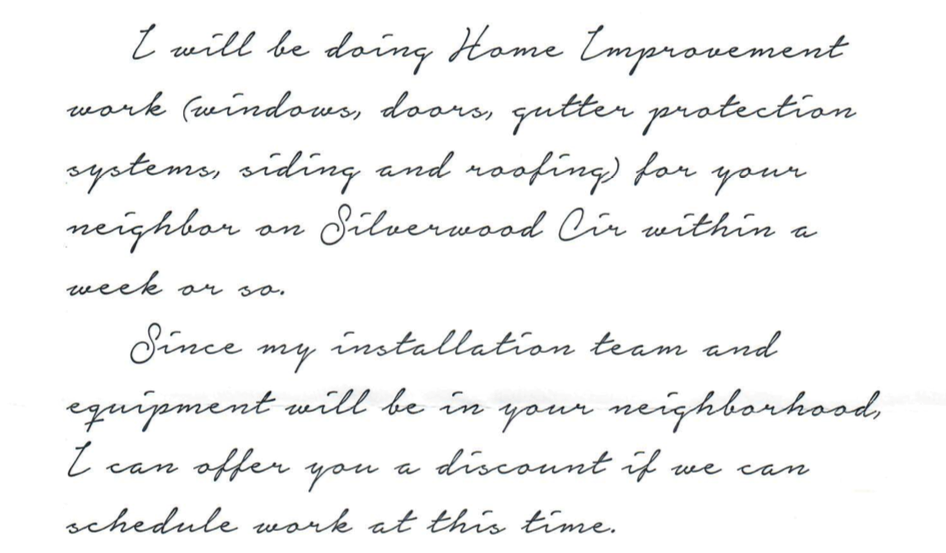 I will be doing Home Improvement
work (windows, doors, gutter protection
systems, siding and roofing) for your
neighbor on Silverwood Cir within a
week or so.
Since my installation team and
equipment will be in your neighborhood,
I can offer you a discount if we can
schedule work at this time.